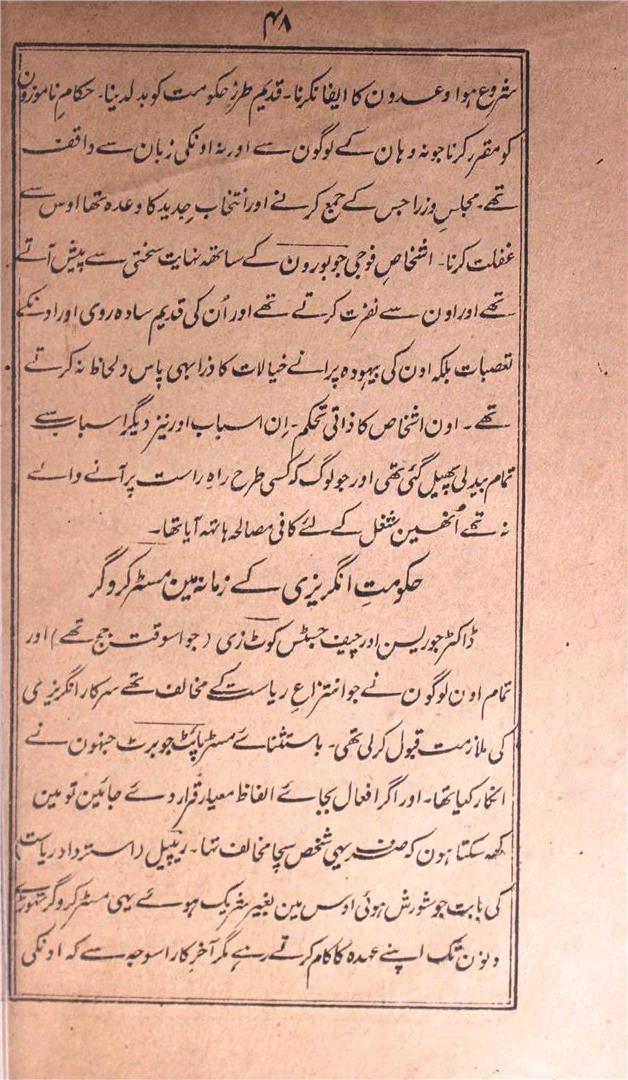 ۴۸
شروع ہوا وعدون کا ایفا نکرنا۔ قدیم طرز حکومت کو بدلدینا۔ حکامِ ناموزون
کو مقرر کرنا جو نہ وہان کے لوگون سے اور نہ اونکی زبان سے واقف
تھے۔ مجلسِ وزرا جس کے جمع کرنے اور انتخابِ جدید کا وعدہ تھا اوس سے
غفلت کرنا۔ اشخاصِ فوجی جو بورون کے ساتھ نہایت سختی سے پیش آتے
تھے اور اون سے نفرت کرتے تھے اور اُن کی قدیم سادہ روی اور اونکے
تعصبات بلکہ اون کی بیہودہ پرانے خیالات کا ذرا بہی پاس و لحاظ نہ کرتے
تھے۔ اون اشخاص کا ذاتی تحکم۔ اِن اسباب اور نیز دیگر اسباب سے
تمام بیدلی پھیل گئی تھی اور جو لوگ کہ کسی طرح راہِ راست پر آنے والے
نہ تھے اُنھین شغل کے لئے کافی مصالحہ ہاتہہ آیا تھا۔
حکومتِ انگریزی کے زمانہ مین مسٹر کروگر
ڈاکٹر جوریسن اور چیف جسٹس کوٹ زی (جو اسوقت جج تھے) اور
تمام اون لوگون نے جو انتزاعِ ریاست کے مخالف تھے سرکار انگریزی
کی ملازمت قبول کرلی تھی۔ باستثنائے مسٹر پائٹ جوبرٹ جنہون نے
انکار کیا تھا۔ اور اگر افعال بجائے الفاظ معیار قرار دئے جائین تو مین
کہہ سکتا ہون کہ صرف یہی شخص سچا مخالف تہا۔ ریپیل (استرداد ریاست)
کی بابت جو شورش ہوئی اوس مین بغیر شریک ہوئے یہی مسٹر کروگر تہوڑے
دنون تک اپنے عہدہ کا کام کرتے رہے مگر آخر کار اسوجہ سے کہ اونکی